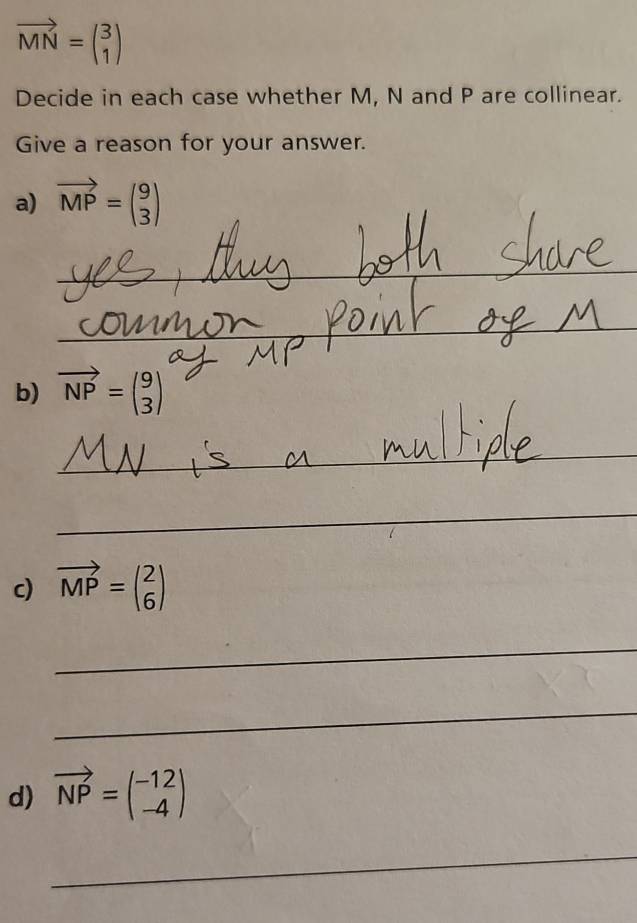 MN = (3 1)
Decide in each case whether M, N and P are collinear.
Give a reason for your answer.
a) MP = (9 3)
yes, they both share
common point of M
b) NP = (9 3) of MP
MN is a multiple
c) MP = (2 6)
d) NP = (–12 –4)